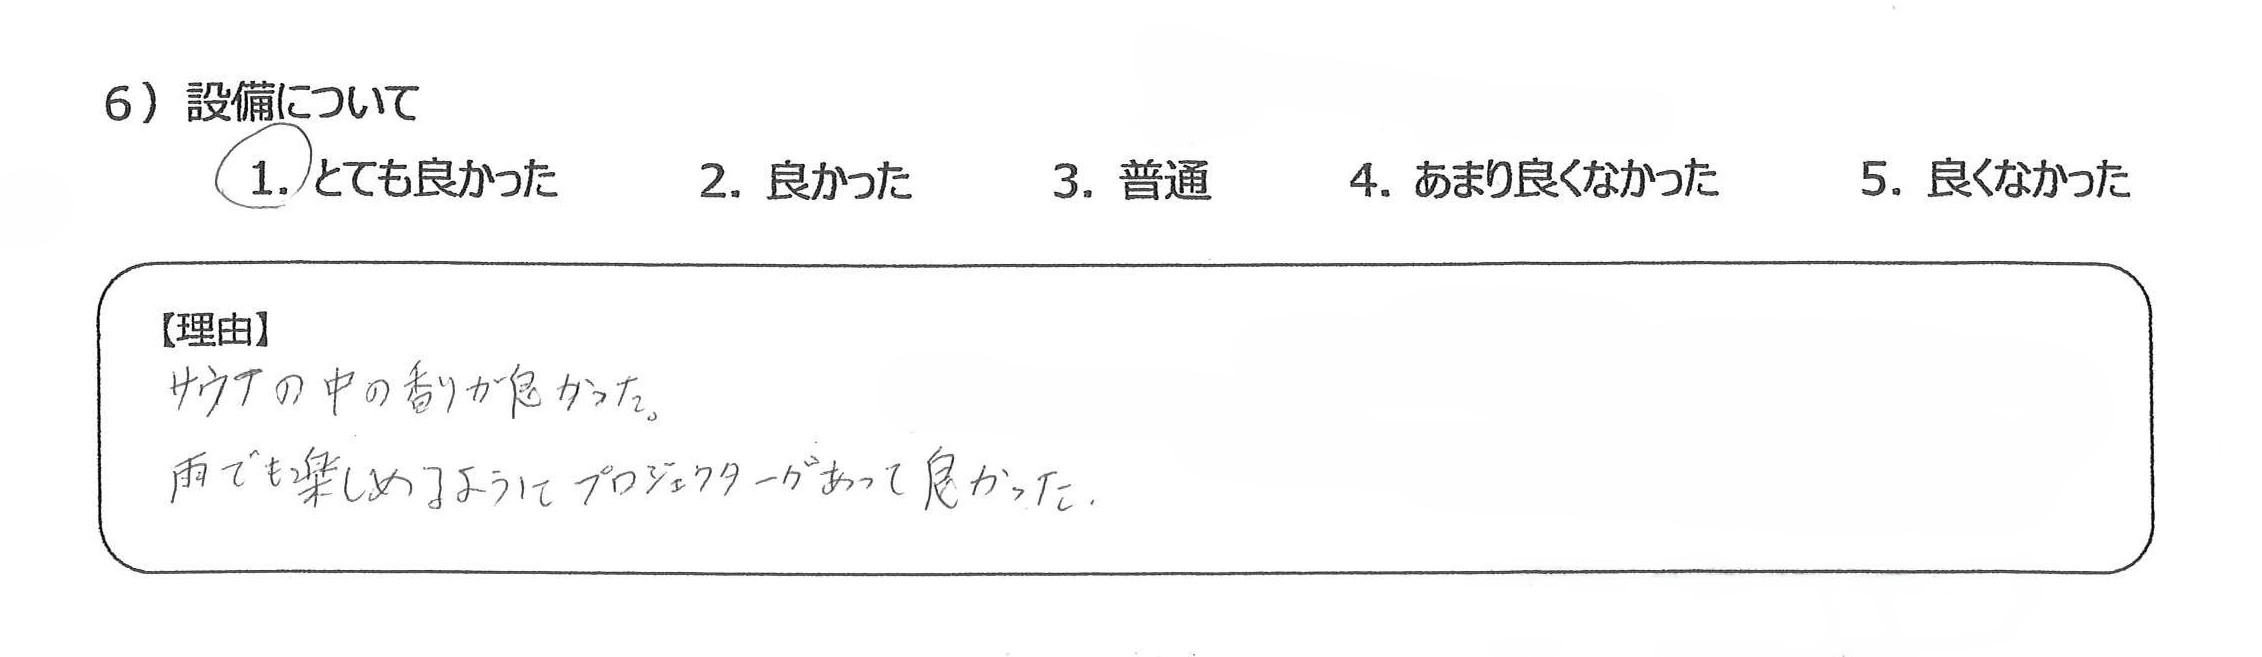 6）設備について
1. とても良かった 2. 良かった 3. 普通 4. あまり良くなかった 5. 良くなかった
【理由】
サウナの中の香りが良かった。
雨でも楽しめるようにプロジェクターがあって良かった.